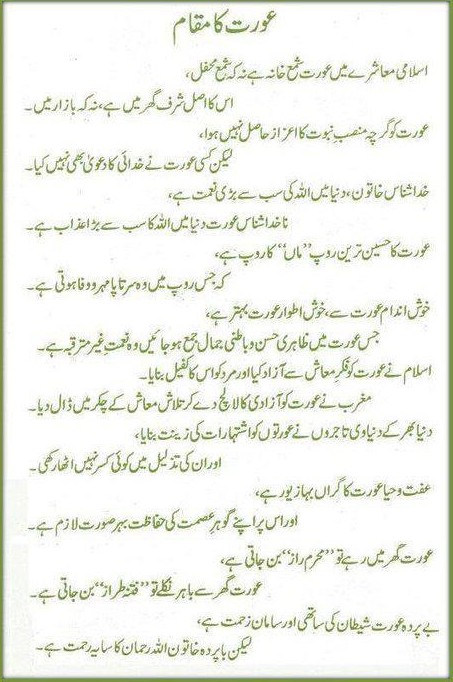 عورت کا مقام
اسلامی معاشرے میں عورت شمع خانہ ہے نہ کہ شمع محفل،
اس کا اصل شرف گھر میں ہے، نہ کہ بازار میں۔
عورت کو گرچہ منصبِ نبوت کا اعزاز حاصل نہیں ہوا،
لیکن کسی عورت نے خدائی کا دعویٰ بھی نہیں کیا۔
خدا شناس خاتون، دنیا میں اللہ کی سب سے بڑی نعمت ہے،
نا خدا شناس عورت دنیا میں اللہ کا سب سے بڑا عذاب ہے۔
عورت کا حسین ترین روپ ”ماں“ کا روپ ہے،
کہ جس روپ میں وہ سرتاپا مہر و وفا ہوتی ہے۔
خوش اندام عورت سے، خوش اطوار عورت بہتر ہے،
جس عورت میں ظاہری حسن و باطنی جمال جمع ہو جائیں وہ نعمتِ غیر مترقبہ ہے۔
اسلام نے عورت کو فکرِ معاش سے آزاد کیا اور مرد کو اس کا کفیل بنایا۔
مغرب نے عورت کو آزادی کا لالچ دے کر تلاش معاش کے چکر میں ڈال دیا۔
دنیا بھر کے دنیاوی تاجروں نے عورتوں کو اشتہارات کی زینت بنایا،
اور ان کی تذلیل میں کوئی کسر نہیں اٹھا رکھی۔
عفت و حیا عورت کا گراں بہا زیور ہے،
اور اس پر اپنے گوہرِ عصمت کی حفاظت بہر صورت لازم ہے۔
عورت گھر میں رہے تو ”محرم راز“ بن جاتی ہے،
عورت گھر سے باہر نکلے تو ”فتنہ طراز“ بن جاتی ہے۔
بے پردہ عورت شیطان کی ساتھی اور سامانِ زحمت ہے،
لیکن با پردہ خاتون اللہ رحمان کا سایہ رحمت ہے۔